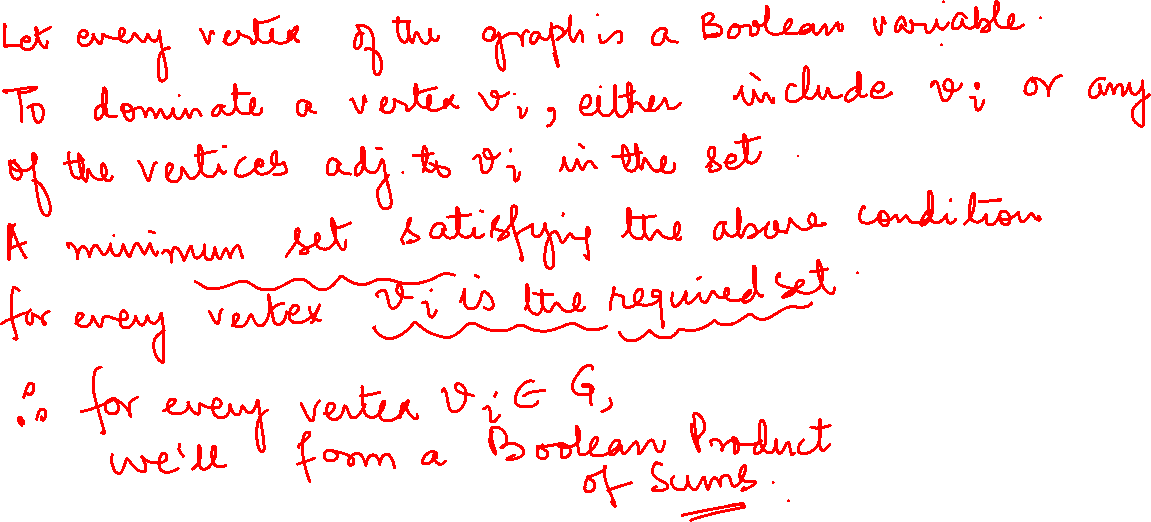 Let every vertex of the graph is a Boolean variable.
To dominate a vertex vᵢ, either include vᵢ or any
of the vertices adj. to vᵢ in the set.
A minimum set satisfying the above condition
for every vertex vᵢ is the required set.
∴ for every vertex vᵢ ∈ G,
we'll form a Boolean Product
of Sums.